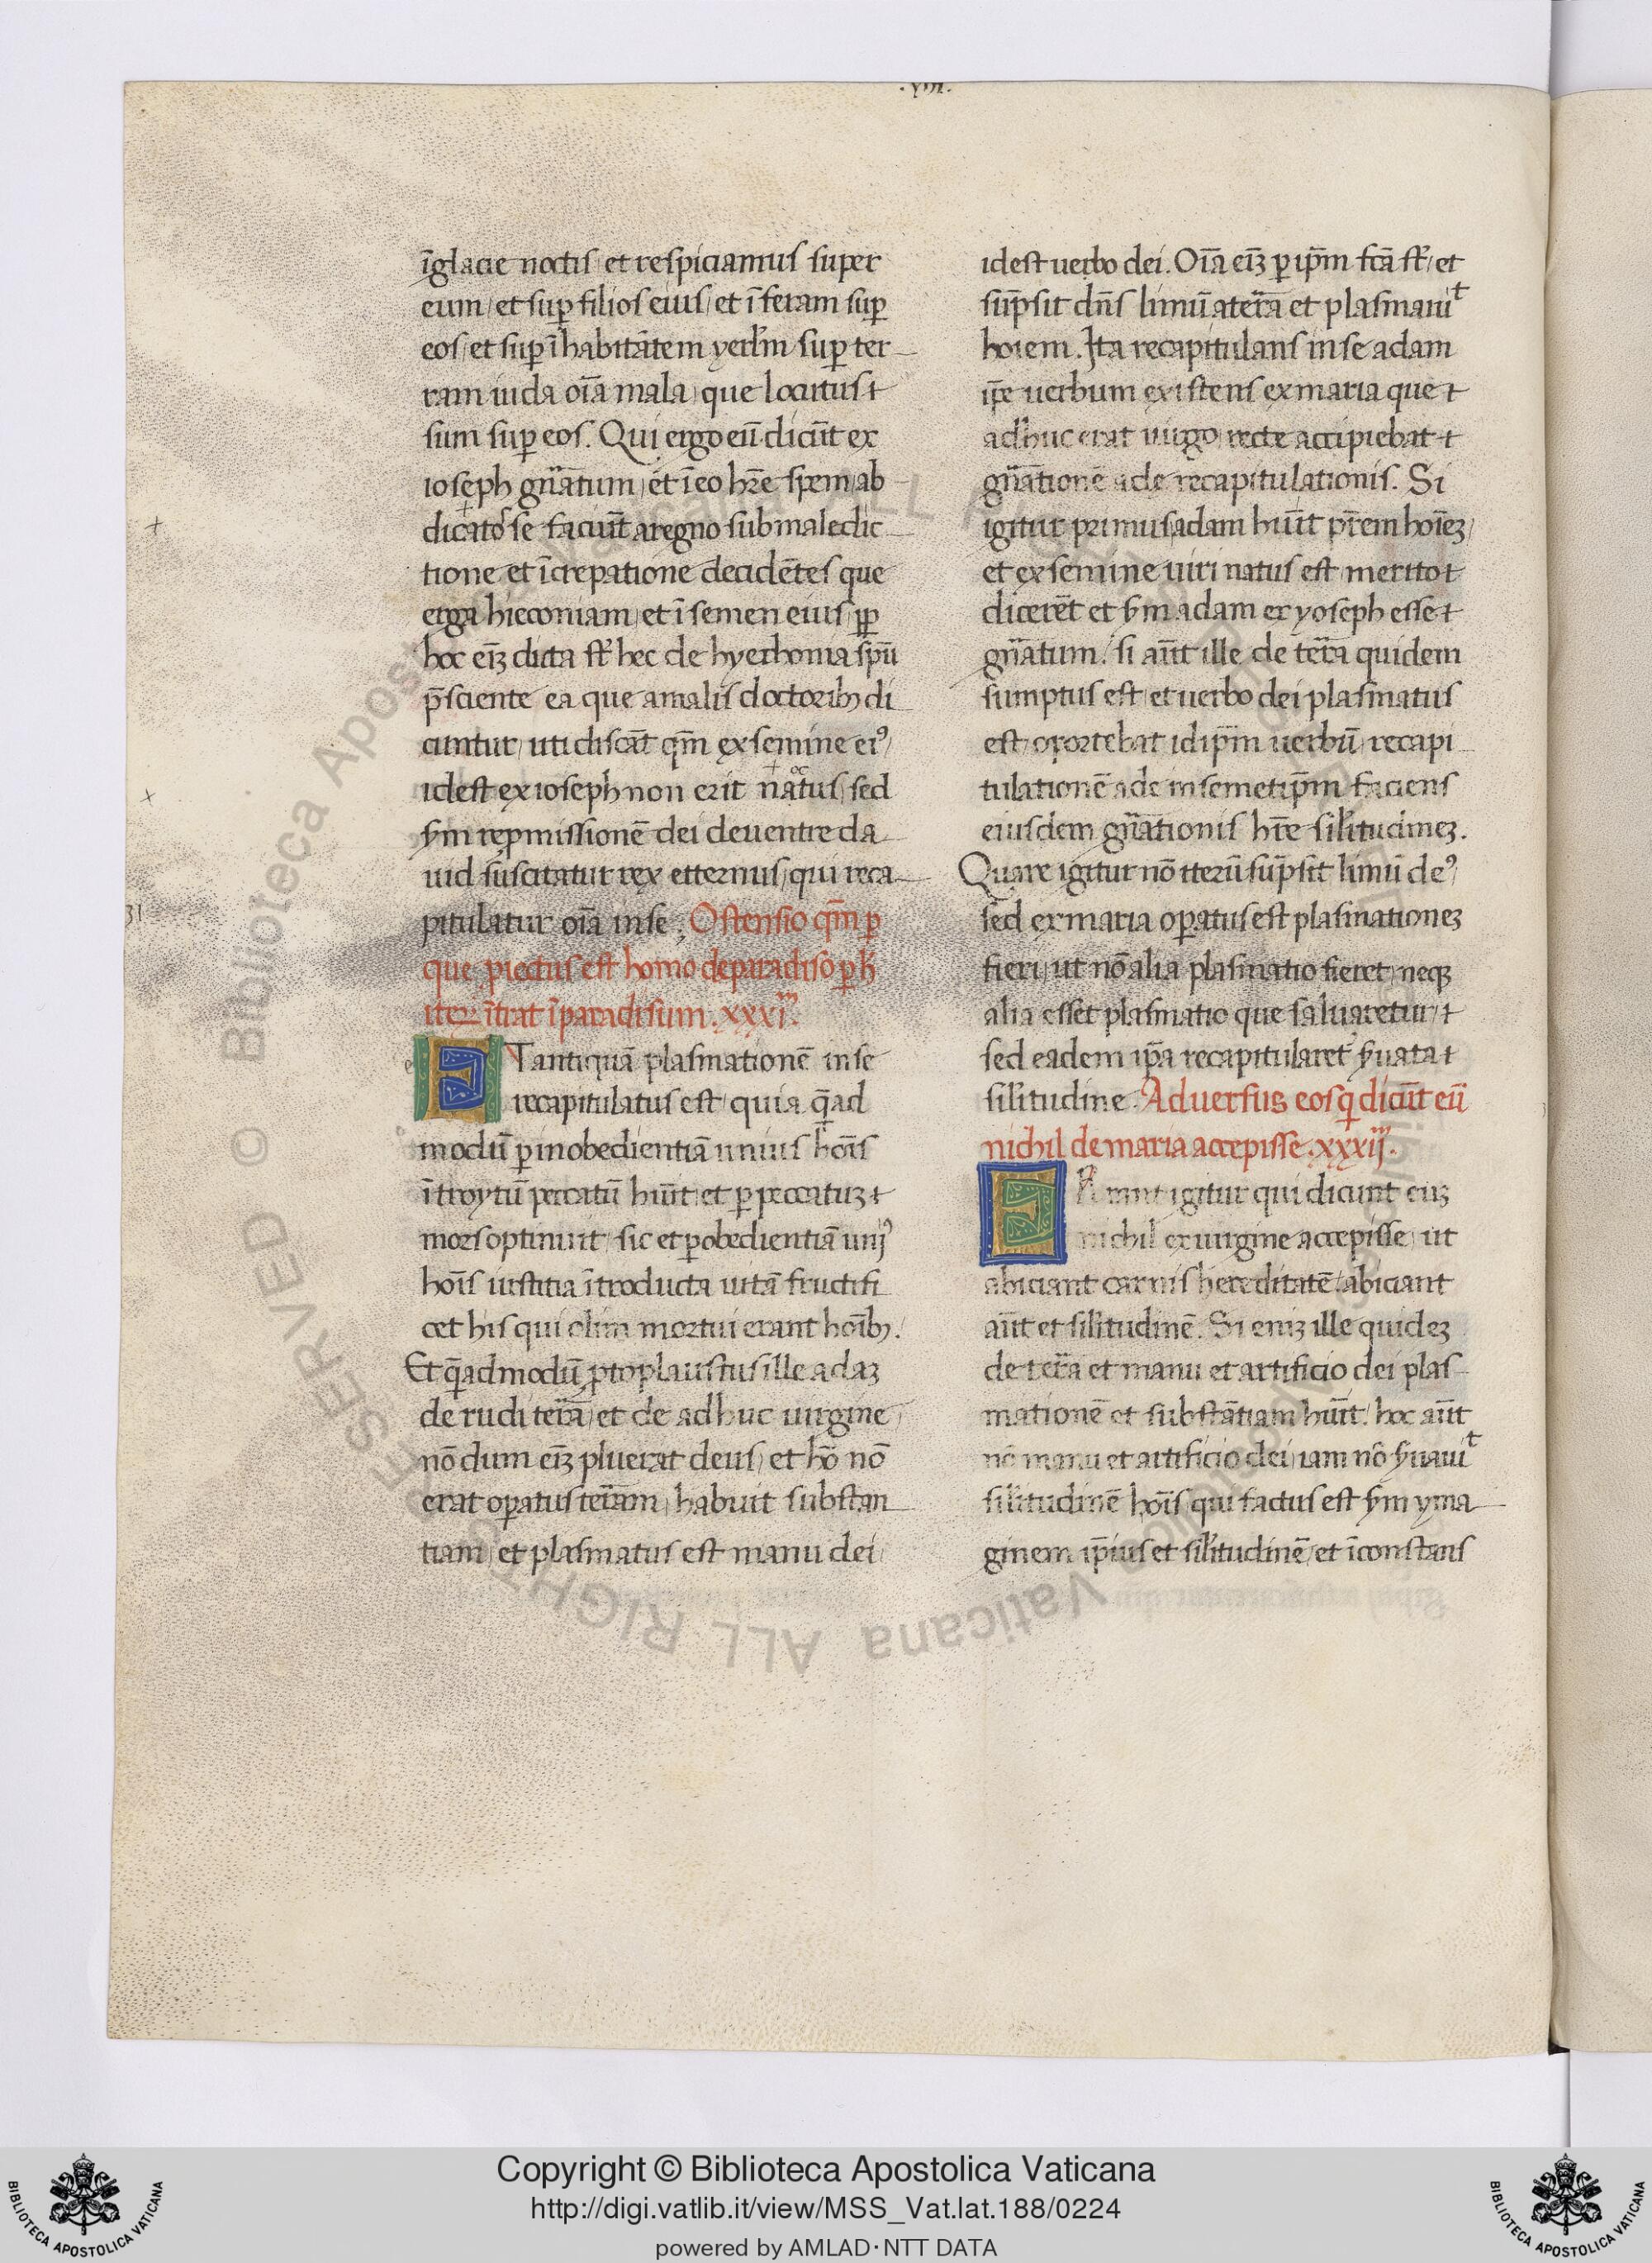 .xvııı.
ĩglacie noctis et respiciamus super
eum et sup̲ filios eius et ĩferam sup̲
eos et sup̲ ĩhabitãtem yerl̃m sup̲ ter-
ram iuda oĩa mala que locutus
sum sup̲ eos. Qui ergo eũ dicũt ex
ioseph gñatum et ĩeo hr̃e spem ab
dicatos se faciũt a regno sub maledic
tione et ĩcrepatione decidẽtes que
erga hieconiam et ĩ semen eius pp̲
hoc eĩȝ dicta st̃ hec de hyechonia spũ
p̃sciente ea que a malis doctoribȝ di
cuntur uti discãt qm̃ ex semine eiꝰ
idest ex ioseph non erit natus sed
sm̃ repmissionẽ dei de uentre da
uid suscitatur rex etternus qui reca
pitulatur oĩa in se. Ostensio qm̃ p̲
que piectus est homo de paradiso p̲ h̃
iter ĩtrat ĩ paradisum. xxxi.
31
e T antiquã plasmationẽ in se
recapitulatus est quia q̃ad
modũ p̲ inobedientiã unius hoĩs
ĩtroytũ peccatũ hũit et p̲ peccatuȝ
mors optinuit sic et p̲ obedientiã uniꝰ
hoĩs iustitia ĩtroducta uitã fructifi
cet his qui olim mortui erant hoĩbȝ.
Et q̃admodũ ptoplaustus ille adaȝ
de rudi terã et de adhuc uirgine
nõdum eĩȝ pluerat deus et hõ nõ
erat op̲atus terãm habuit substan
tiam et plasmatus est manu dei
idest uerbo dei. Oĩa eĩȝ p̲ ip̃m fcã st̃ et
sũpsit dñs limũ a terã et plasmauit
hoiem. Ita recapitulans in se adam
ip̃e uerbum existens ex maria que
adhuc erat uirgo recte accipiebat
gñationẽ ade recapitulationis. Si
igitur primus adam hũit pr̃em hoĩeȝ
et ex semine uiri natus est merito
dicerẽt et sm̃ adam ex yoseph esse
gñatum. si aũt ille de terã quidem
sumptus est et uerbo dei plasmatus
est oportebat id ip̃m uerbũ recapi
tulationẽ ade in semetip̃m faciens
eiusdem gñationis hr̃e silitudineȝ.
Quare igitur nõ iterũ sũpsit limũ deꝰ
sed ex maria op̲atus est plasmationeȝ
fieri ut nõ alia plasmatio fieret neqȝ
alia esset plasmatio que saluaretur
sed eadem ip̃a recapitularet s̃uata
silitudine. Aduersus eos q̲ dicũt eũ
nichil de maria accepisse. xxxij.
E R rant igitur qui dicunt euȝ
nichil ex uirgine accepisse ut
abiciant carnis hereditatẽ abiciant
aũt et silitudinẽ. Si eniȝ ille quideȝ
de terã et manu et artificio dei plas
mationẽ et substãtiam hũit. hoc aũt
nõ manu et artificio dei iam nõ s̃uauit
silitudinẽ hoĩs qui factus est sm̃ yma
ginem ip̃ius et silitudinẽ et ĩconstans
© Biblioteca Apostolica Vaticana ALL RIGHTS RESERVED
BIBLIOTECA APOSTOLICA VATICANA
Copyright © Biblioteca Apostolica Vaticana
http://digi.vatlib.it/view/MSS_Vat.lat.188/0224
powered by AMLAD·NTT DATA
BIBLIOTECA APOSTOLICA VATICANA